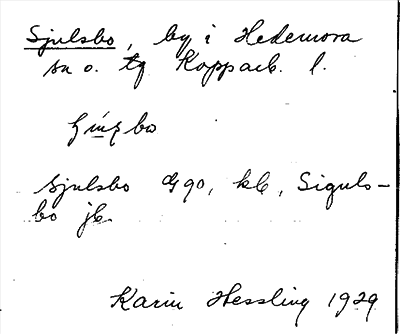 Sjulsbo, by i Hedemora
sn o. tg Kopparb. l.
sjulsbo G 90, kb, Siguls-
bo jb
Karin Hessling 1929